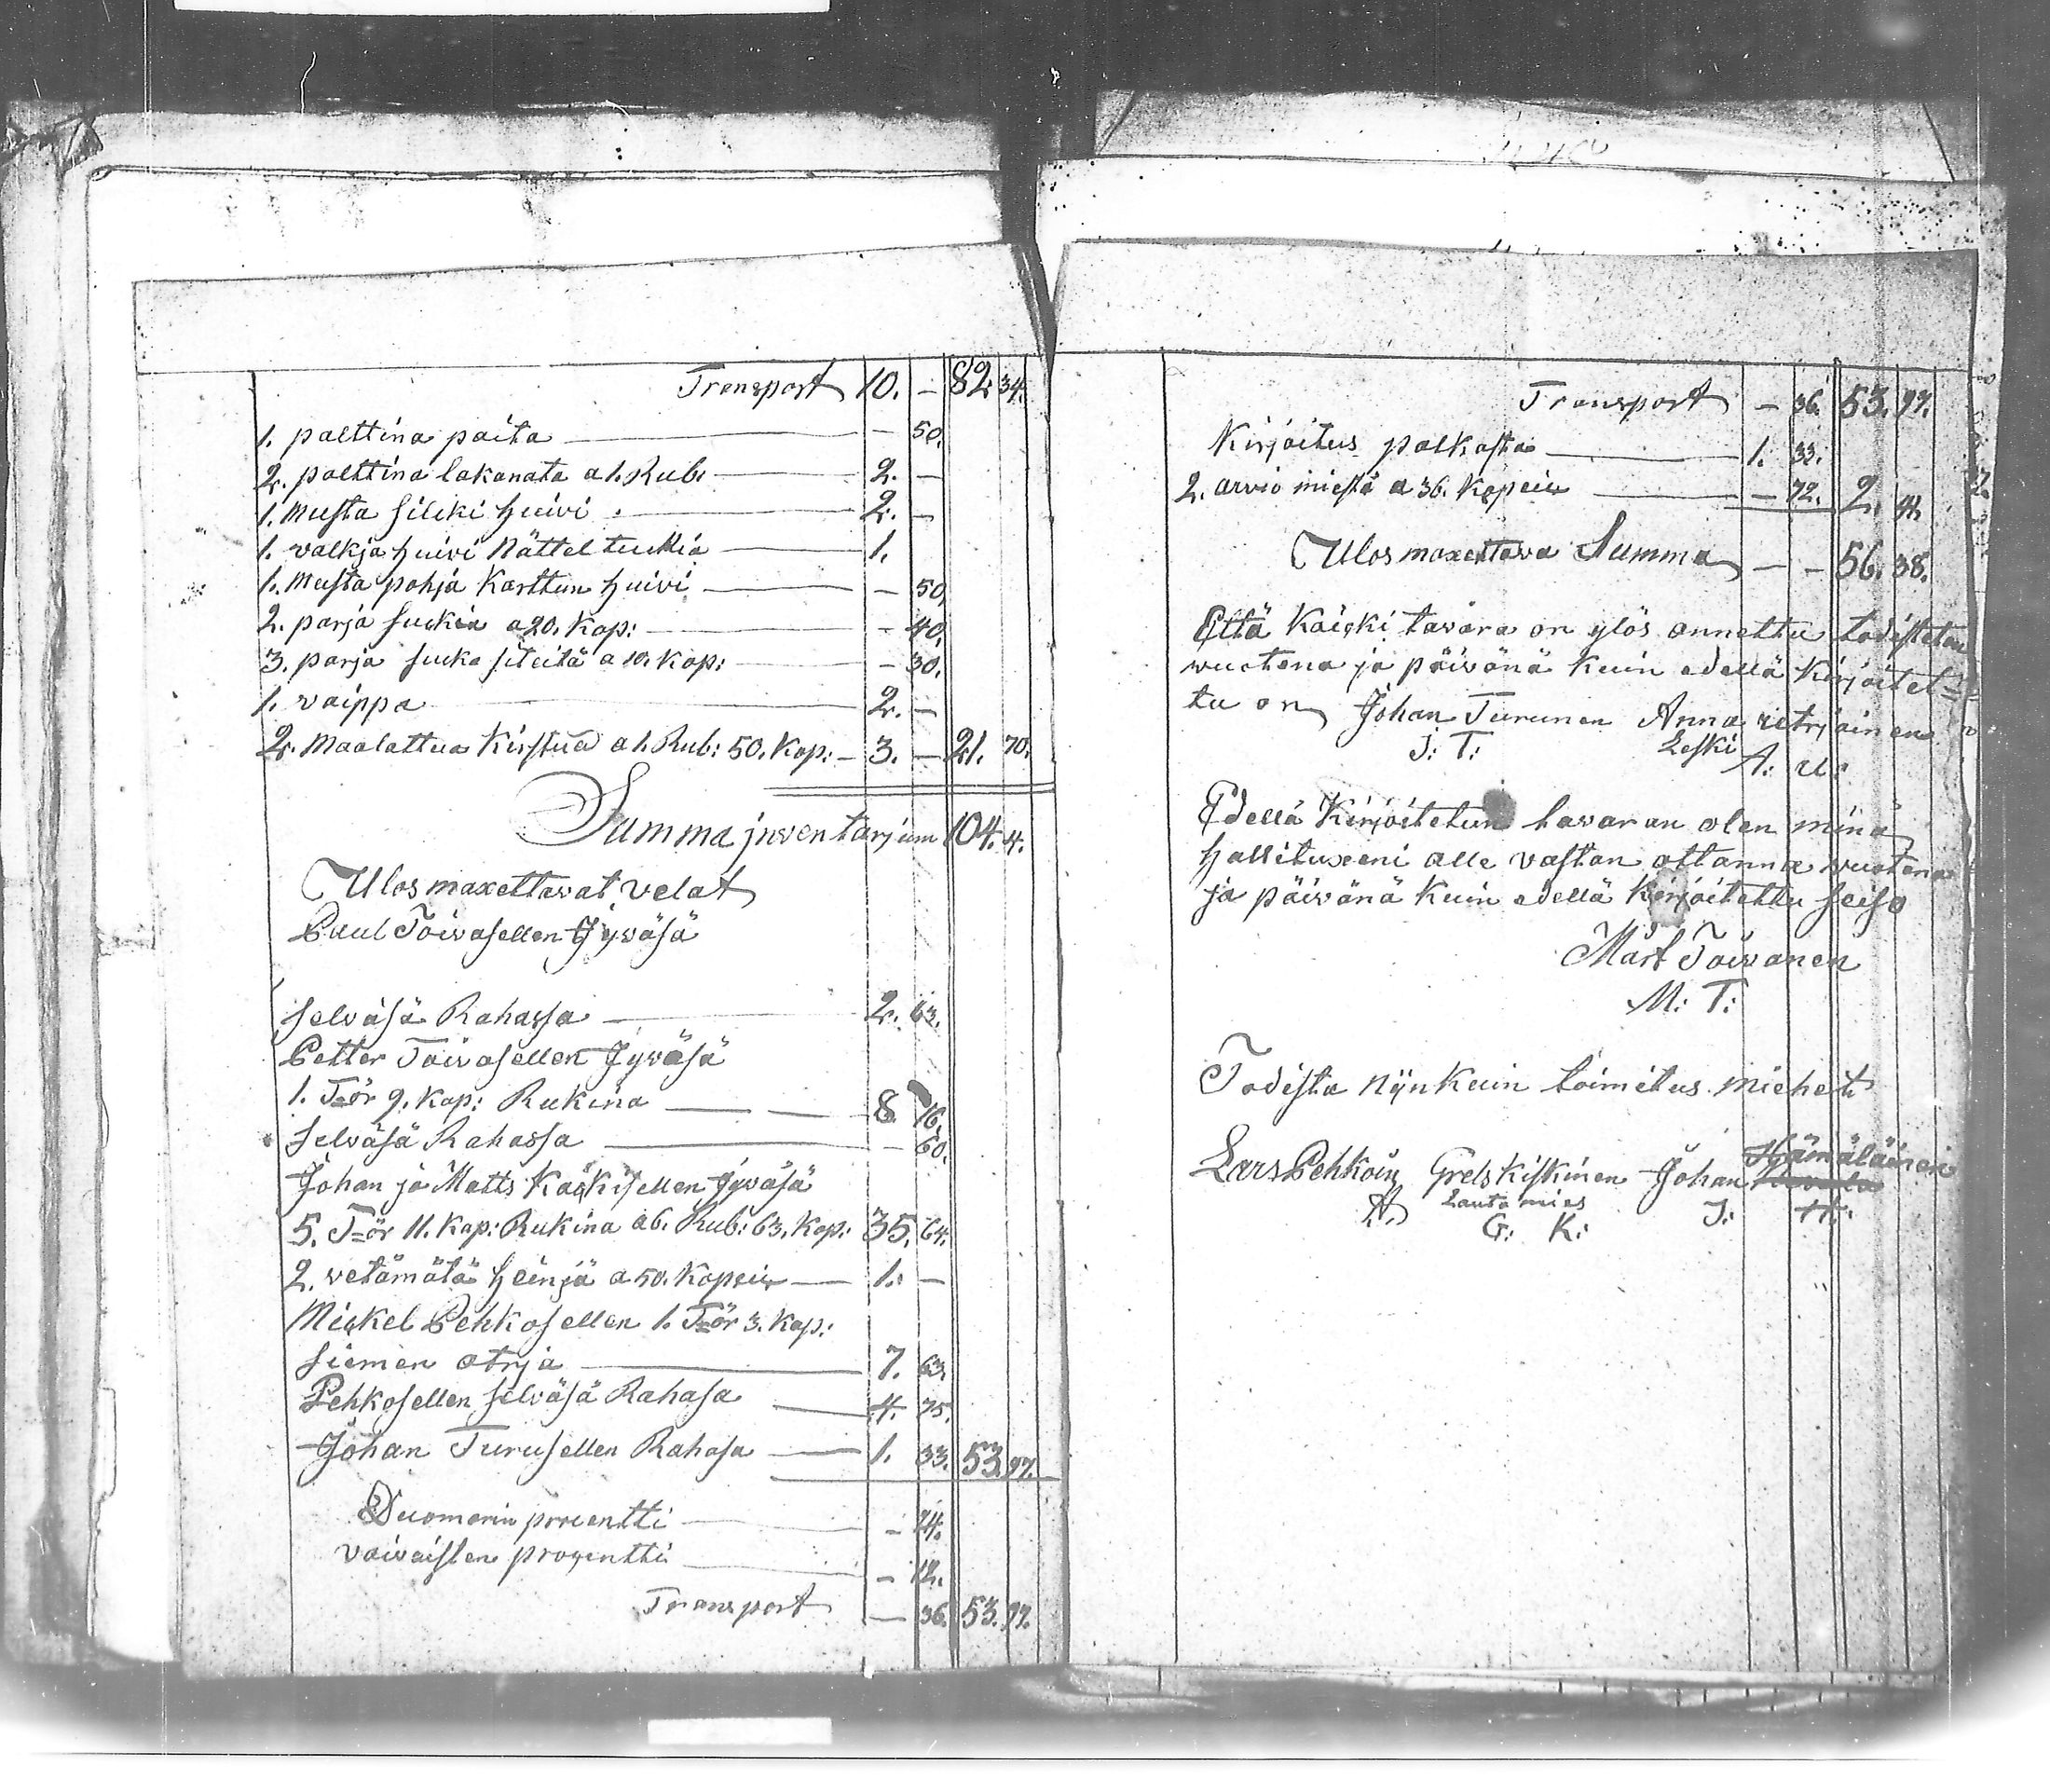 Transport 10. – 82. 34.
1. palttina paita – 50.
2. palttina lakanata a 1. Rub: 2. –
1. Musta silcki huivi 2. –
1. valkja huivi Nättel tuckia 1.
1. Musta pohja Karttun huivi – 50.
2. parja suckia a 20. Kop: – 40.
3. parja sucka siteitä a 10. Kop: – 30.
1. vaippa 2. –
2. Maalattua Kirstua a 1. Rub: 50. Kop: – 3. – 21. 70.
Summa jnventarjum 104. 4.
Ulos maxettavat velat
Paul Toivasellen Jywäsä
selväsä Rahassa 2. 63.
Petter Toivasellen Jywäsä
1. T=ör 9. Kap: Rukina 8 76.
selväsä Rahassa – 60.
Johan ja Matts Käckisellen Jywäsä
5. T=ör 11. Kap: Rukina a 6. Rub: 63. Kop: 35. 64.
2. vetämätä heinjä a 50. Kopeik 1. –
Mickel Pehkosellen 1. T=ör 3. Kap:
siemen otrja 7. 63.
Pehkosellen selväsä Rahasa 4. 75.
Johan Turusellen Rahasa 1. 33. 53. 97.
Duomarin procentti – 24.
vaivaisten procentti – 12.
Transport – 36. 53. 97.
Transport – 36. 53. 97.
Kirjoitus palkasta 1. 33.
2. arvio miestä a 36. Kopeik – 72. 2. 41.
Ulos maxettava Summa – – 56. 38.
Että Kaicki tavara on ylös annettu todistetan
vuotena ja päivänä kuin edellä Kirjoitet=
tu on Johan Turunen Anna
J: T: Leski A:
Edellä Kirjoitetun tavaran olen minä
hallituxeni alle vastan ottanna vuotena
ja päivänä kuin edellä Kirjoitettu seiso
Mårt Toivanen
M: T:
Todista nijnkuin toimitus miehet
Lars Pehkoin Grels Kiskinen Johan Hämäläinen
Lautamies J: H:
G: K: